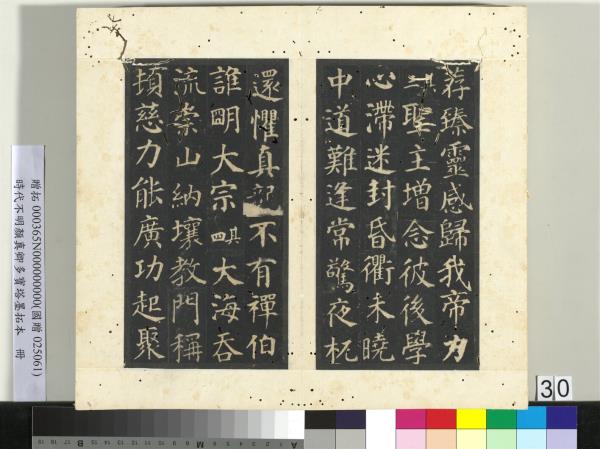 荐臻靈感歸我帝力
其三聖主增念彼後學
心滯迷封昏衢未曉
中道難逢常驚夜枕
還懼真龍不有禪伯
誰明大宗其四大海吞
流崇山納壤教門稱
頓慈力能廣功起聚
贈拓 000365N000000000(國贈 025061)
時代不明顏真卿多寶塔墨拓本 冊
30